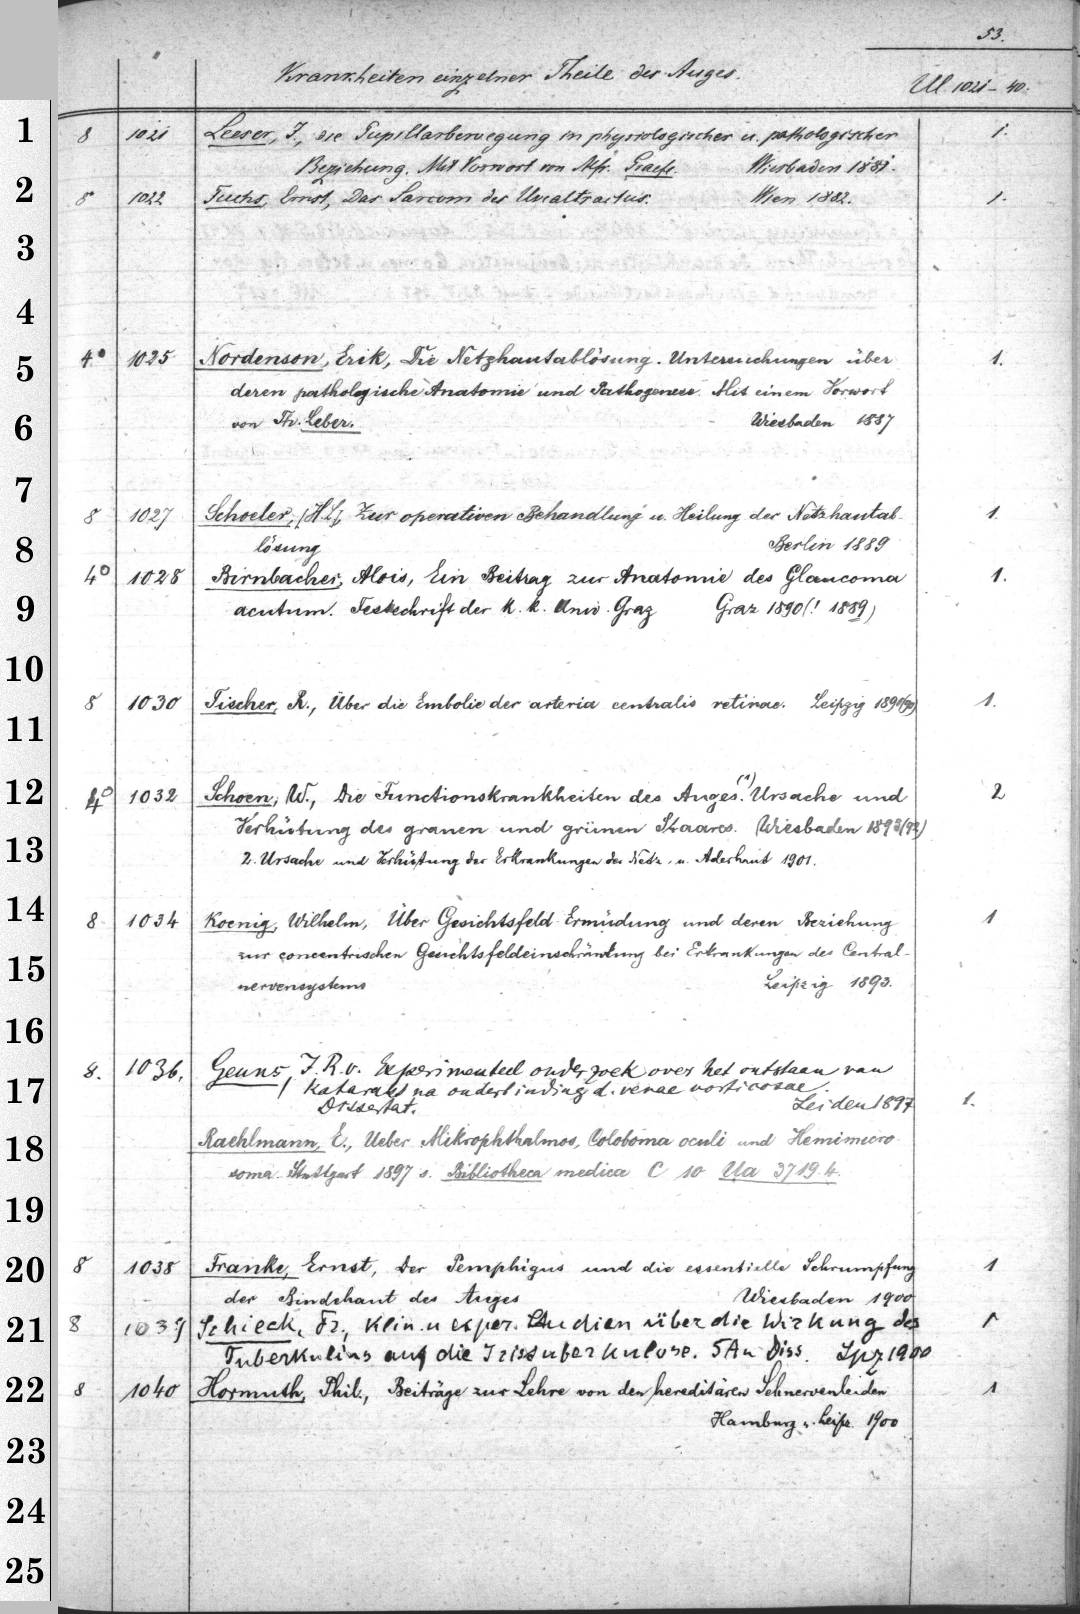 53.
Krankheiten einzelner Theile des Auges.
Ul 1021-40.
1
8 1021 Leeser, J., die Pupillarbewegung in physiologischer u. pathologischer 1.
Beziehung. Mit Vorwort von Alfr. Graefe. Wiesbaden 1881.
2
8 1022 Fuchs, Ernst, Das Sarcom des Uvealtractus. Wien 1882. 1.
3
4
5
4° 1025 Nordenson, Erik, Die Netzhautablösung. Untersuchungen über 1.
deren pathologische Anatomie und Pathogenese. Mit einem Vorwort
6
von Th. Leber. Wiesbaden 1887
7
8 1027 Schoeler, (H.L.), Zur operativen Behandlung u. Heilung der Netzhautab- 1.
8
lösung Berlin 1889
4° 1028 Birnbacher, Alois, Ein Beitrag zur Anatomie des Glaucoma 1.
9
acutum. Festschrift der k. k. Univ. Graz Graz 1890 (! 1889)
10
8 1030 Fischer, R., Über die Embolie der arteria centralis retinae. Leipzig 1891(90) 1.
11
12
4° 1032 Schoen, W., Die Functionskrankheiten des Auges.(1) Ursache und 2
Verhütung des grauen und grünen Staares. Wiesbaden 1893(92)
13
2. Ursache und Verhütung der Erkrankungen der Netz- u. Aderhaut 1901.
14
8 1034 Koenig, Wilhelm, Über Gesichtsfeld-Ermüdung und deren Beziehung 1
15
zur concentrischen Gesichtsfeldeinschränkung bei Erkrankungen des Central-
nervensystems Leipzig 1893.
16
17
8. 1036. Geuns, J. R. v. Experimenteel onderzoek over het ontstaan van
katarakt na onderbinding d. venae vorticosae.
Dissertat. Leiden 1897 1.
18
Raehlmann, E., Ueber Mikrophthalmos, Coloboma oculi und Hemimicro-
soma. Stuttgart 1897 s. Bibliotheca medica C 10 Ua 3719.4.
19
20
8 1038 Franke, Ernst, Der Pemphigus und die essentielle Schrumpfung 1
der Bindehaut des Auges Wiesbaden 1900
21
8 1039 Schieck, Fr., Klin. u exper. Studien über die Wirkung des 1
Tuberkulins auf die Iristuberkulose. SAu Diss. Lpz 1900
22
8 1040 Hormuth, Phil., Beiträge zur Lehre von den hereditären Sehnervenleiden 1
Hamburg u. Leipz. 1900
23
24
25